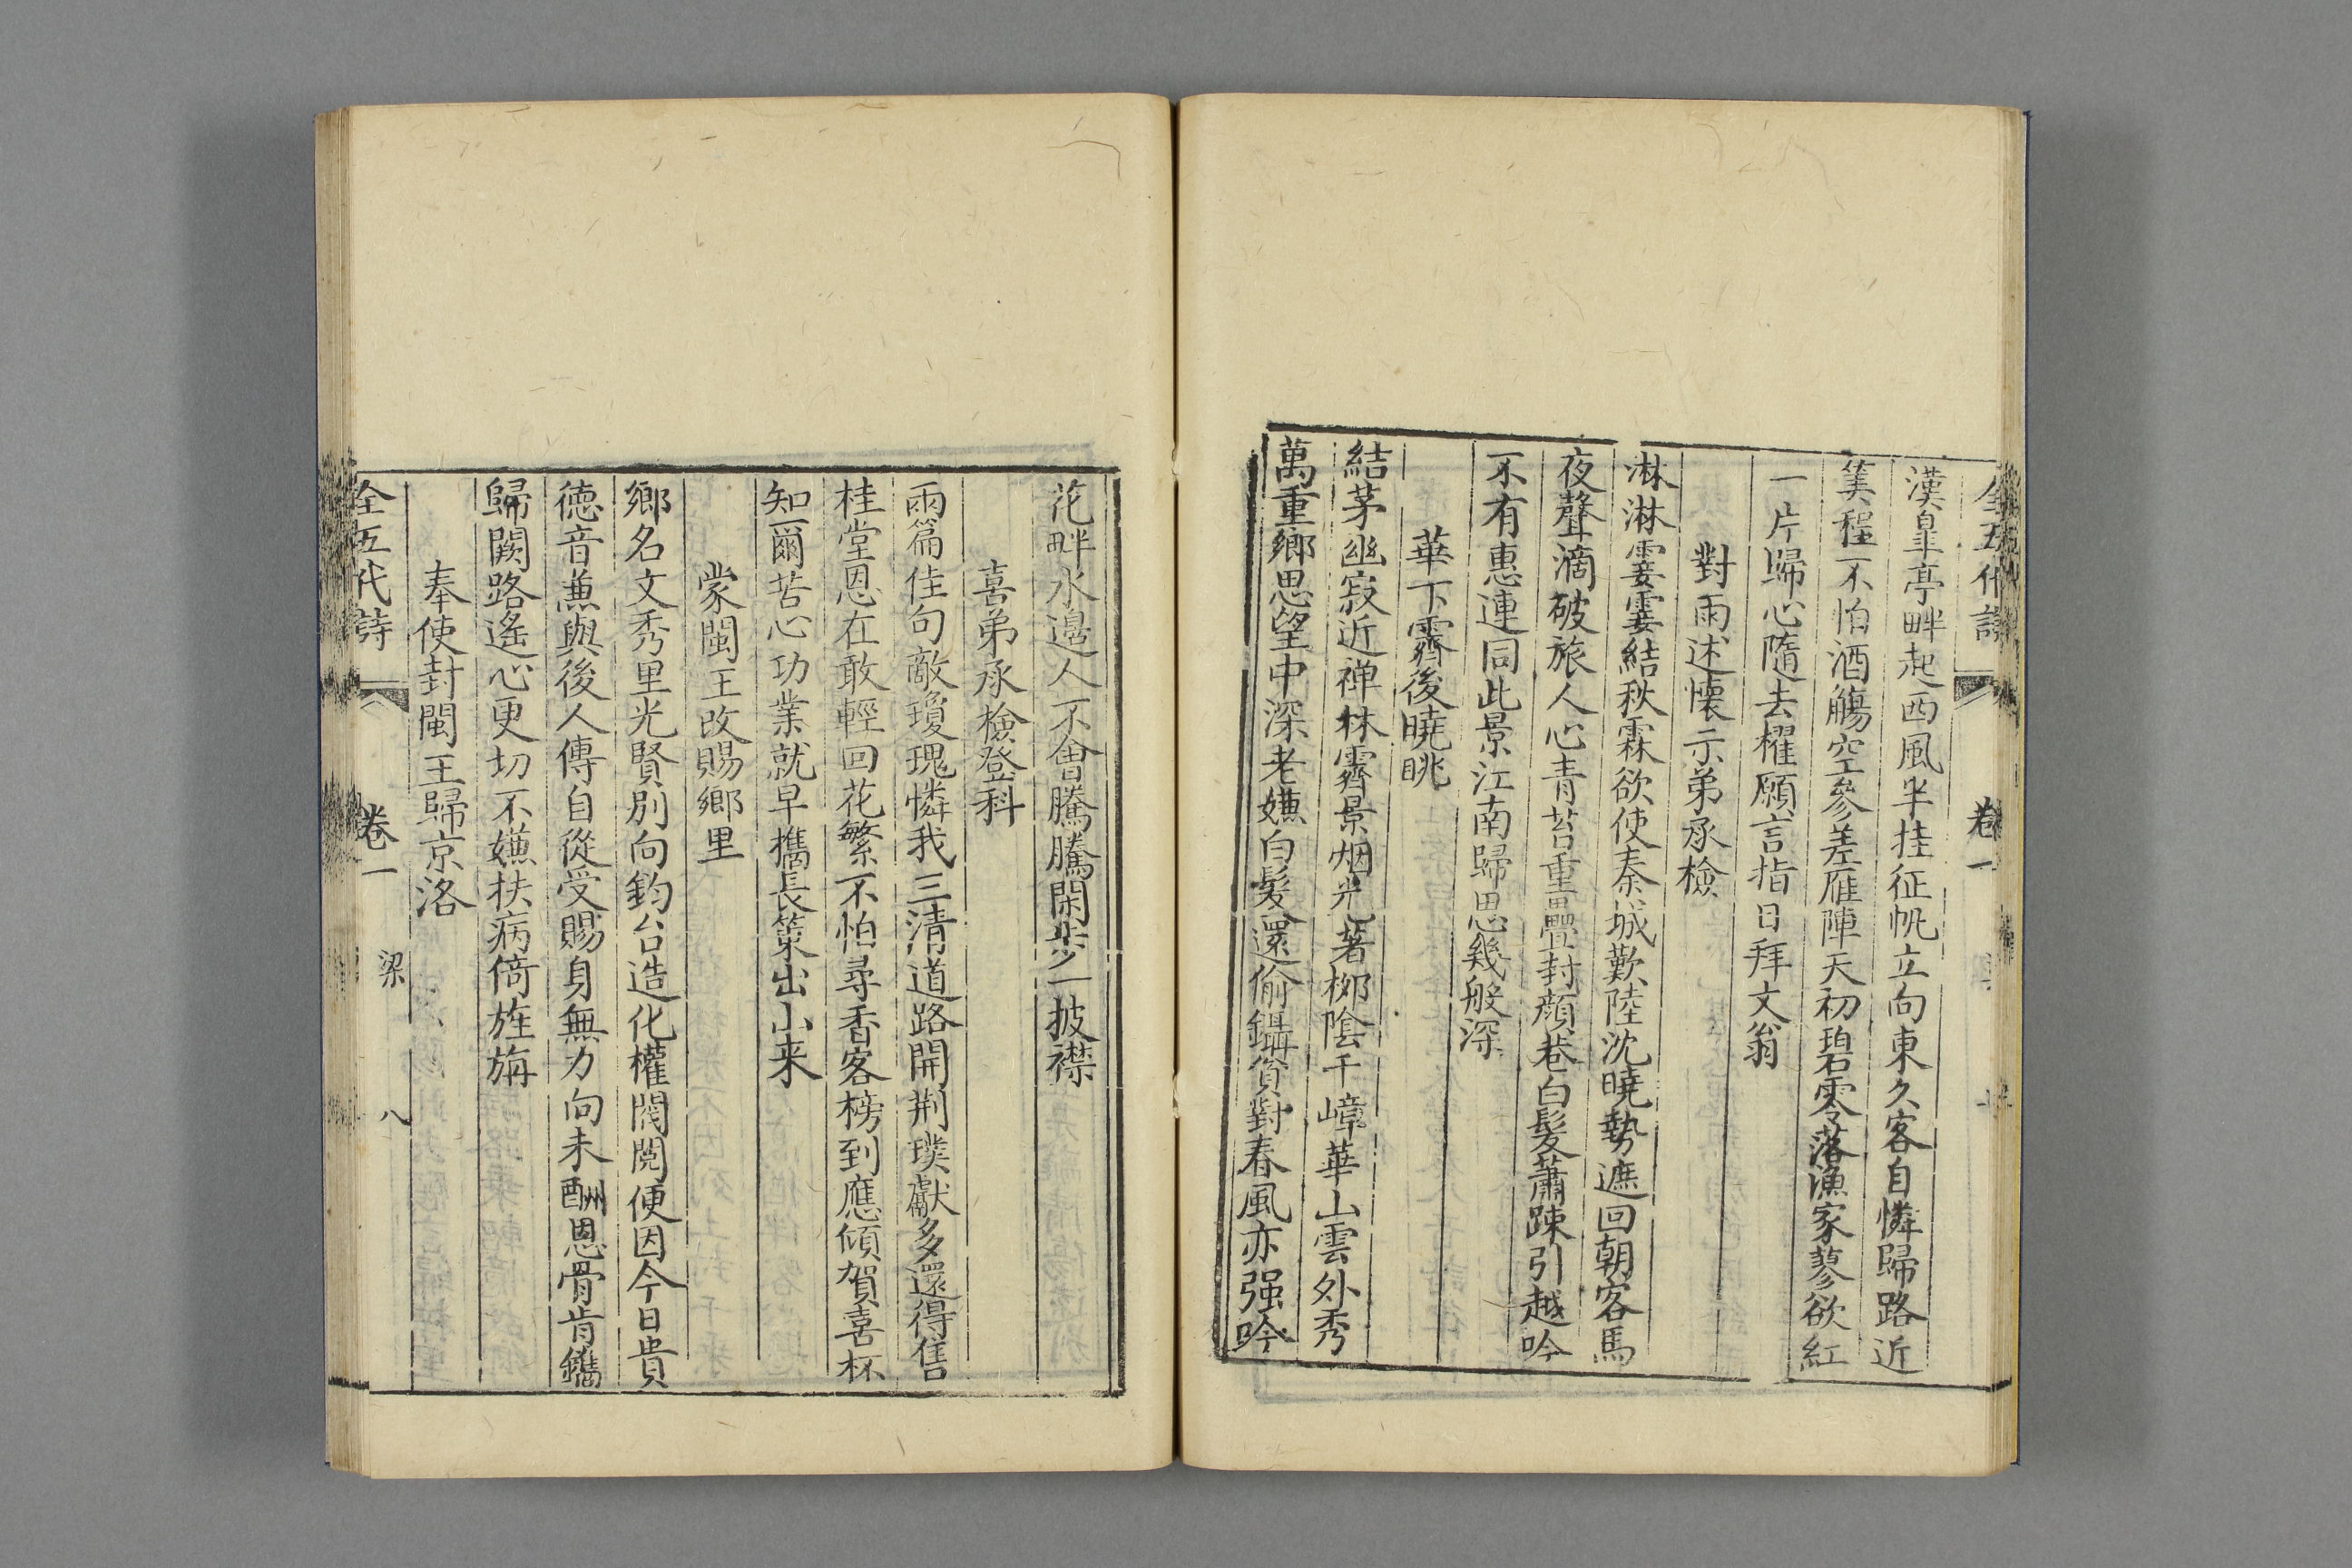 全五代詩 卷一
漢皐亭畔起西風半挂征帆立向東久客自憐歸路近
筭程不怕酒觴空參差雁陣天初碧零落漁家蓼欲紅
一片歸心隨去櫂願言指日拜文翁
對雨述懷示弟承檢
淋淋霎霎結秋霖欲使秦城歎陸沈曉勢遮回朝客馬
夜聲滴破旅人心青苔重疊封顏巷白髮蕭踈引越吟
不有惠連同此景江南歸思幾般深
華下霽後曉眺
結茅幽寂近禅林霽景烟光著栁陰千嶂華山雲外秀
萬重鄉思望中深老嫌白髮還偷鑷貧對春風亦强吟
花畔水邊人不會騰騰閑步一披襟
喜弟承檢登科
兩篇佳句敵瓊瑰憐我三清道路開荆璞獻多還得售
桂堂恩在敢輕回花繁不怕尋香客榜到應傾賀喜杯
知爾苦心功業就早攜長策出山来
蒙閩王改賜鄉里
鄉名文秀里光賢別向鈞台造化權閥閱便因今日貴
德音蒹與後人傳自從受賜身無力向未酬恩骨肯鐫
歸闕路遙心更切不嫌扶病倚旌旃
奉使封閩王歸京洛
全五代詩 卷一 梁 八